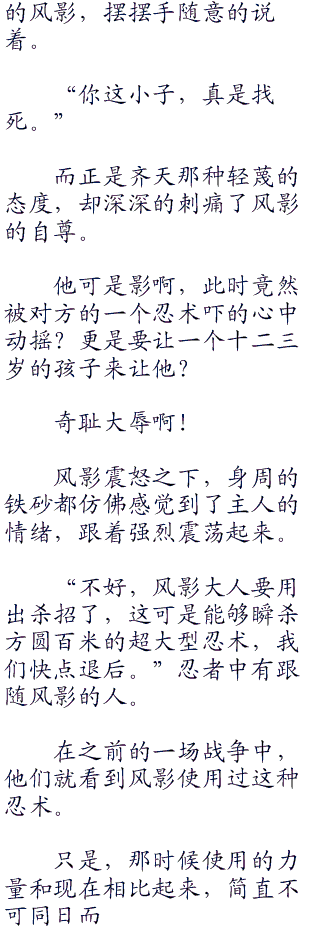 的风影，摆摆手随意的说
着。
“你这小子，真是找
死。”
而正是齐天那种轻蔑的
态度，却深深的刺痛了风影
的自尊。
他可是影啊，此时竟然
被对方的一个忍术吓的心中
动摇？更是要让一个十二三
岁的孩子来让他？
奇耻大辱啊！
风影震怒之下，身周的
铁砂都仿佛感觉到了主人的
情绪，跟着强烈震荡起来。
“不好，风影大人要用
出杀招了，这可是能够瞬杀
方圆百米的超大型忍术，我
们快点退后。”忍者中有跟
随风影的人。
在之前的一场战争中，
他们就看到风影使用过这种
忍术。
只是，那时候使用的力
量和现在相比起来，简直不
可同日而